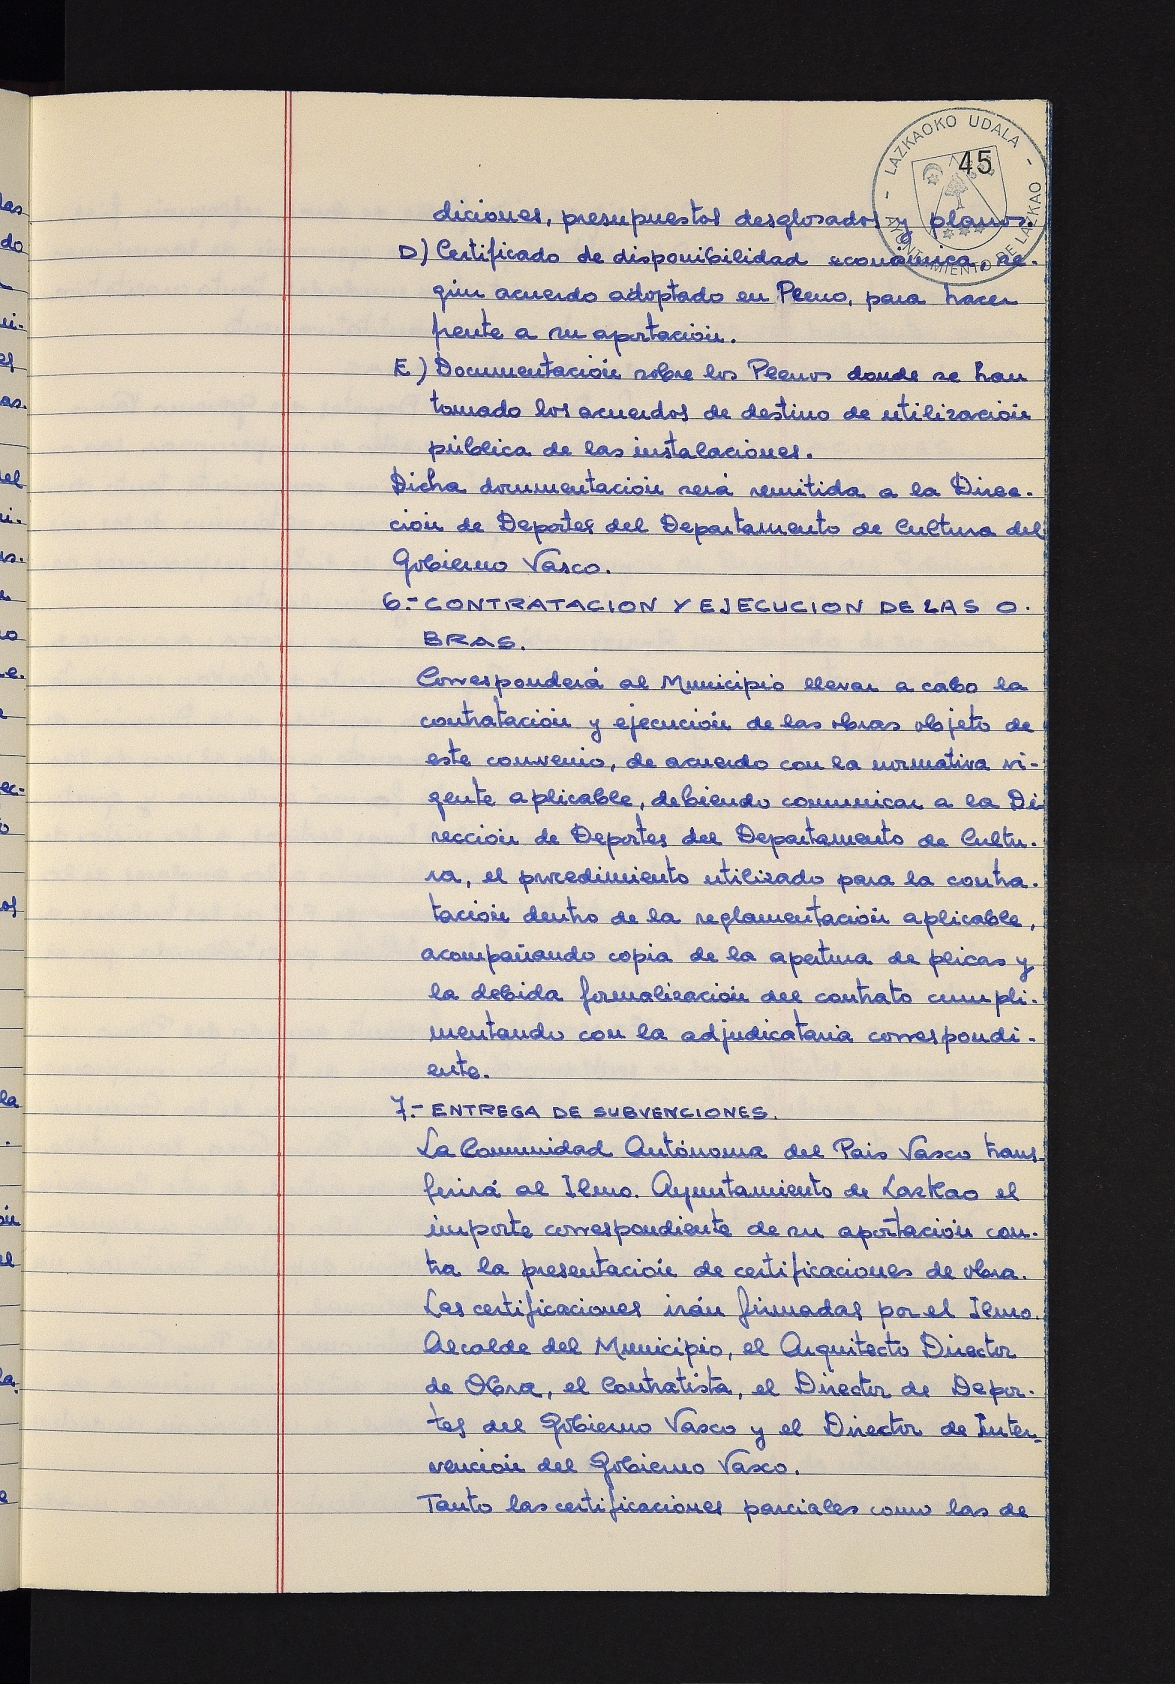 LAZKAOKO UDALA - AYUNTAMIENTO DE LAZKAO -
45
diciones, presupuestos desglosados y planos.
D) Certificado de disponibilidad económica, se-
gún acuerdo adoptado en Pleno, para hacer
frente a su aportación.
E) Documentación sobre los Plenos donde se han
tomado los acuerdos de destino de utilización
pública de las instalaciones.
Dicha documentación será remitida a la Direc-
ción de Deportes del Departamento de Cultura del
Gobierno Vasco.
6.- CONTRATACION Y EJECUCION DE LAS O-
BRAS.
Corresponderá al Municipio llevar a cabo la
contratación y ejecución de las obras objeto de
este convenio, de acuerdo con la normativa vi-
gente aplicable, debiendo comunicar a la Di
rección de Deportes del Departamento de Cultu-
ra, el procedimiento utilizado para la contra-
tación dentro de la reglamentación aplicable,
acompañando copia de la apertura de plicas y
la debida formalización del contrato cumpli-
mentando con la adjudicataria correspondi-
ente.
7.- ENTREGA DE SUBVENCIONES.
La Comunidad Autónoma del Pais Vasco trans-
ferirá al Ilmo. Ayuntamiento de Lazkao el
importe correspondiente de su aportación con-
tra la presentación de certificaciones de obra.
Las certificaciones irán firmadas por el Ilmo.
Alcalde del Municipio, el Arquitecto Director
de Obra, el Contratista, el Director de Depor-
tes del Gobierno Vasco y el Director de Inter-
vención del Gobierno Vasco.
Tanto las certificaciones parciales como las de